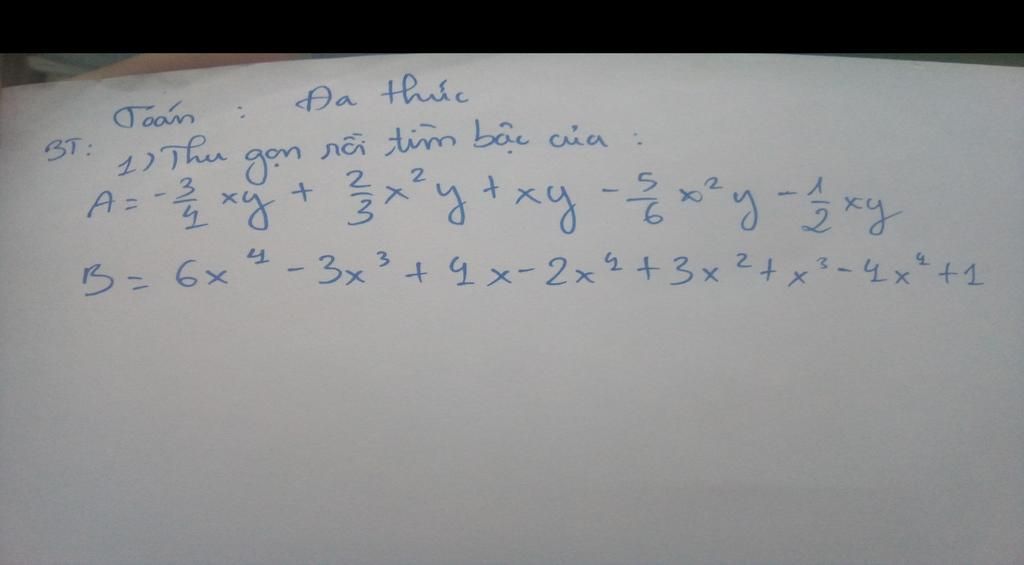 Toán : Đa thức
BT: 1) Thu gọn rồi tìm bậc của :
A = -3/4 xy + 2/3 x²y + xy - 5/6 x²y - 1/2 xy
B = 6x⁴ - 3x³ + 4x - 2x⁴ + 3x² + x³ - 4x⁴ + 1